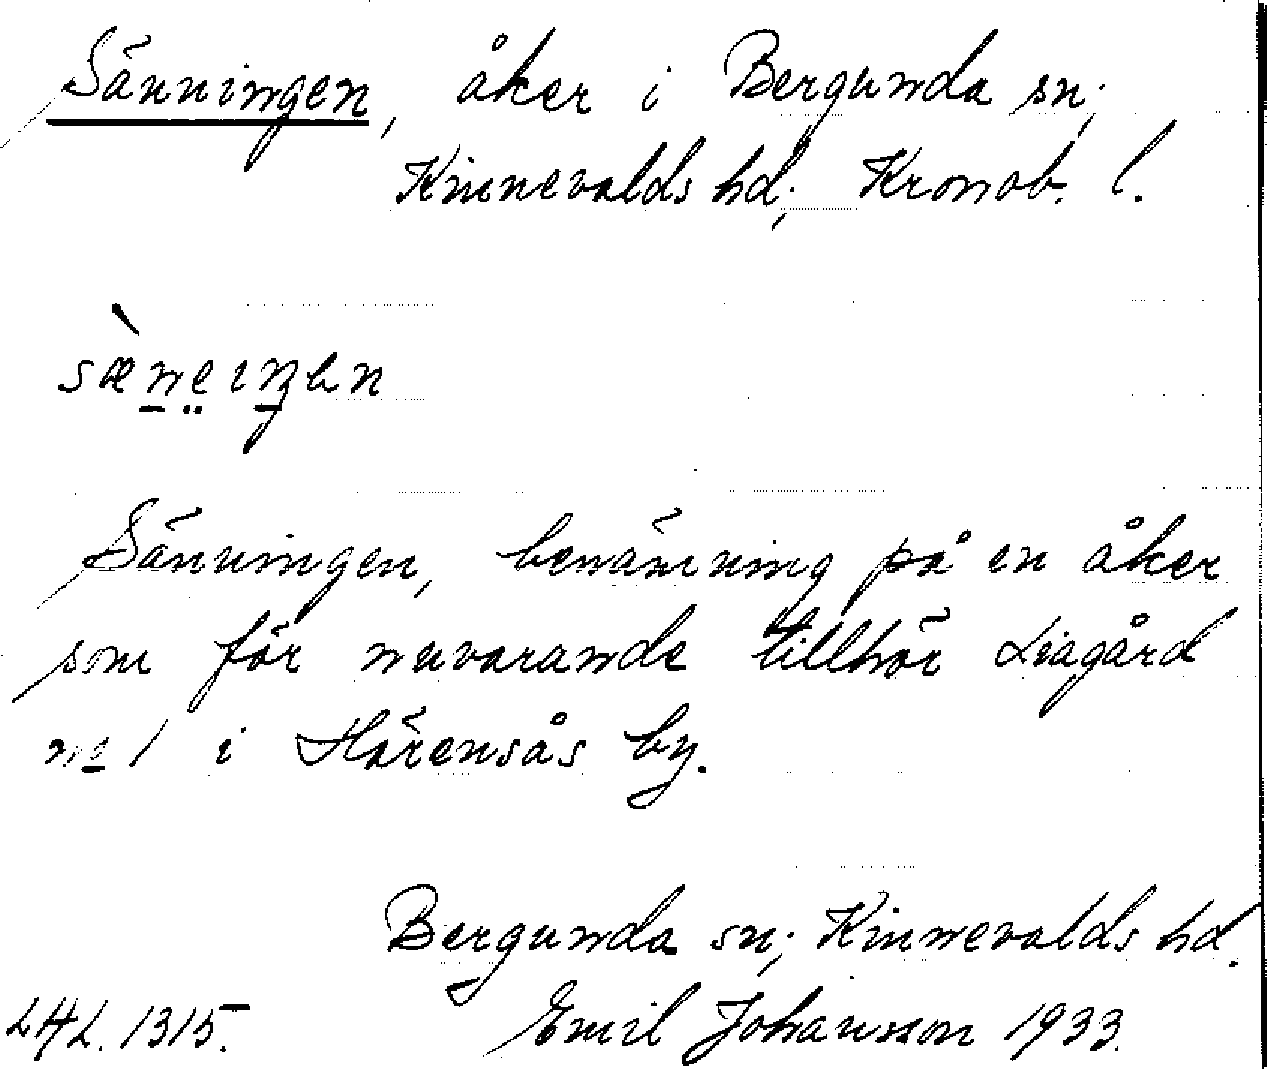 Sänningen, åker i Bergunda sn;
Kinnevalds hd; Kronob. l.
Sänningen, benämning på en åker
som för nuvarande tillhör Liagård
no 1 i Härensås by.
Bergunda sn; Kinnevalds hd.
LHL. 1315. Emil Johansson 1933.